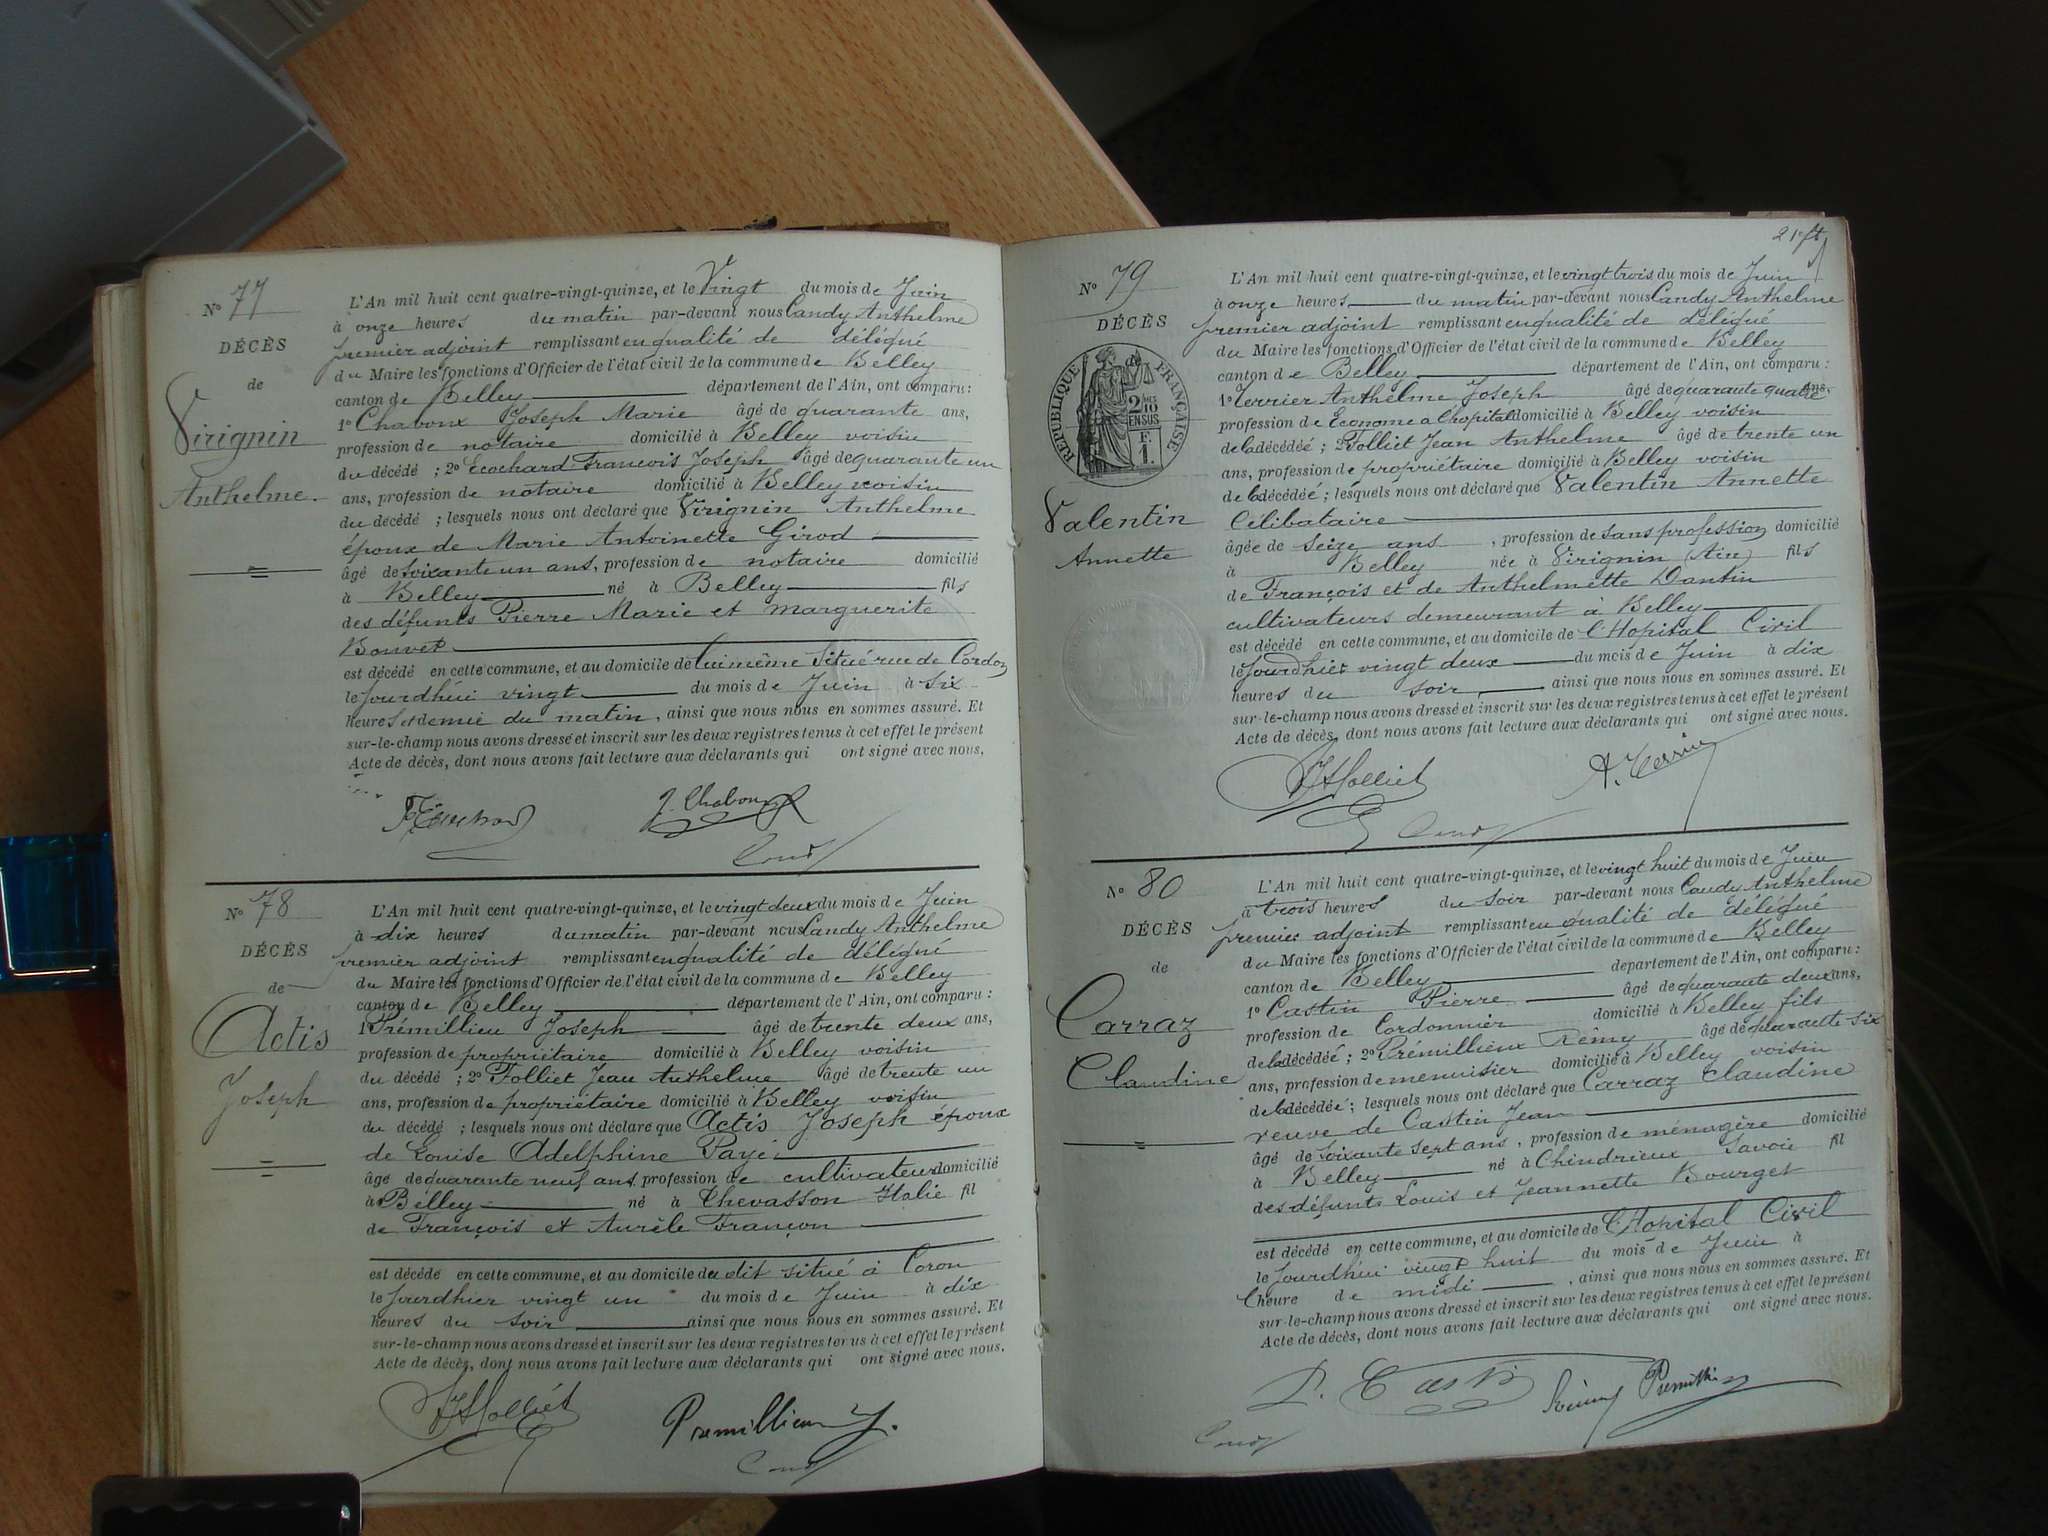 No 77
DÉCÈS
de
Virignin
Anthelme.
L'An mil huit cent quatre-vingt-quinze, et le Vingt du mois de Juin
à onze heures du matin par-devant nous Candy Anthelme
premier adjoint remplissant en qualité de délégué
du Maire les fonctions d'Officier de l'état civil de la commune de Belley
canton de Belley département de l'Ain, ont comparu :
1º Chaboux Joseph Marie âgé de quarante ans,
profession de notaire domicilié à Belley voisin
du décédé ; 2º Ecochard François Joseph âgé de quarante un
ans, profession de notaire domicilié à Belley voisin
du décédé ; lesquels nous ont déclaré que Virignin Anthelme
époux de Marie Antoinette Girod
âgé de soixante un ans, profession de notaire domicilié
à Belley né à Belley fils
des défunts Pierre Marie et Marguerite
Bouvet
est décédé en cette commune, et au domicile de lui même situé rue de Cordon
le jourdhui vingt du mois de Juin à six
heures et demie du matin, ainsi que nous nous en sommes assuré. Et
sur-le-champ nous avons dressé et inscrit sur les deux registres tenus à cet effet le présent
Acte de décès, dont nous avons fait lecture aux déclarants qui ont signé avec nous,
J. Chaboux
No 78
DÉCÈS
de
Actis
Joseph
L'An mil huit cent quatre-vingt-quinze, et le vingt deux du mois de Juin
à dix heures du matin par-devant nous Candy Anthelme
premier adjoint remplissant en qualité de délégué
du Maire les fonctions d'Officier de l'état civil de la commune de Belley
canton de Belley département de l'Ain, ont comparu :
1º Prémillieu Joseph âgé de trente deux ans,
profession de propriétaire domicilié à Belley voisin
du décédé ; 2º Folliet Jean Anthelme âgé de trente un
ans, profession de propriétaire domicilié à Belley voisin
du décédé ; lesquels nous ont déclaré que Actis Joseph époux
de Louise Adelphine Payé
âgé de quarante neuf ans, profession de cultivateur domicilié
à Belley né à Chevasson Italie fil
de François et Aurèle Françon
est décédé en cette commune, et au domicile du dit situé à Coron
le jourdhier vingt un du mois de Juin à dix
heures du soir ainsi que nous nous en sommes assuré. Et
sur-le-champ nous avons dressé et inscrit sur les deux registres tenus à cet effet le présent
Acte de décès, dont nous avons fait lecture aux déclarants qui ont signé avec nous.
JAFolliet
Premillieu J.
No 79
DÉCÈS
REPUBLIQUE FRANÇAISE
2 MES
10
EN SUS
F.
1.
Valentin
Annette
L'An mil huit cent quatre-vingt-quinze, et le vingt trois du mois de Juin
à onze heures du matin par-devant nous Candy Anthelme
premier adjoint remplissant en qualité de délégué
du Maire les fonctions d'Officier de l'état civil de la commune de Belley
canton de Belley département de l'Ain, ont comparu :
1º Terrier Anthelme Joseph âgé de quarante quatre ans,
profession de Econome a l'hopital domicilié à Belley voisin
de la décédée ; 2º Folliet Jean Anthelme âgé de trente un
ans, profession de propriétaire domicilié à Belley voisin
de la décédée ; lesquels nous ont déclaré que Valentin Annette
Célibataire
âgée de seize ans, profession de sans profession domicilié
à Belley née à Virignin (Ain) fils
de François et de Anthelmette Dantin
cultivateurs demeurant à Belley
est décédé en cette commune, et au domicile de l'Hopital Civil
le jourdhier vingt deux du mois de Juin à dix
heures du soir, ainsi que nous nous en sommes assuré. Et
sur-le-champ nous avons dressé et inscrit sur les deux registres tenus à cet effet le présent
Acte de décès, dont nous avons fait lecture aux déclarants qui ont signé avec nous.
JAFolliet
A. Terrier
No 80
DÉCÈS
de
Carraz
Claudine
L'An mil huit cent quatre-vingt-quinze, et le vingt huit du mois de Juin
à trois heures du soir par-devant nous Candy Anthelme
premier adjoint remplissant en qualité de délégué
du Maire les fonctions d'Officier de l'état civil de la commune de Belley
canton de Belley département de l'Ain, ont comparu :
1º Castin Pierre âgé de quarante deux ans,
profession de Cordonnier domicilié à Belley fils
de la décédée ; 2º Prémillieux Rémy âgé de quarante six
ans, profession de menuisier domicilié à Belley voisin
de la décédée ; lesquels nous ont déclaré que Carraz Claudine
veuve de Castin Jean
âgé de soixante sept ans, profession de ménagère domicilié
à Belley né à Chindrieux Savoie fil
des défunts Louis et Jeannette Bourget
est décédé en cette commune, et au domicile de l'Hopital Civil
le jourdhui vingt huit du mois de Juin à
l'heure de midi, ainsi que nous nous en sommes assuré. Et
sur-le-champ nous avons dressé et inscrit sur les deux registres tenus à cet effet le présent
Acte de décès, dont nous avons fait lecture aux déclarants qui ont signé avec nous.